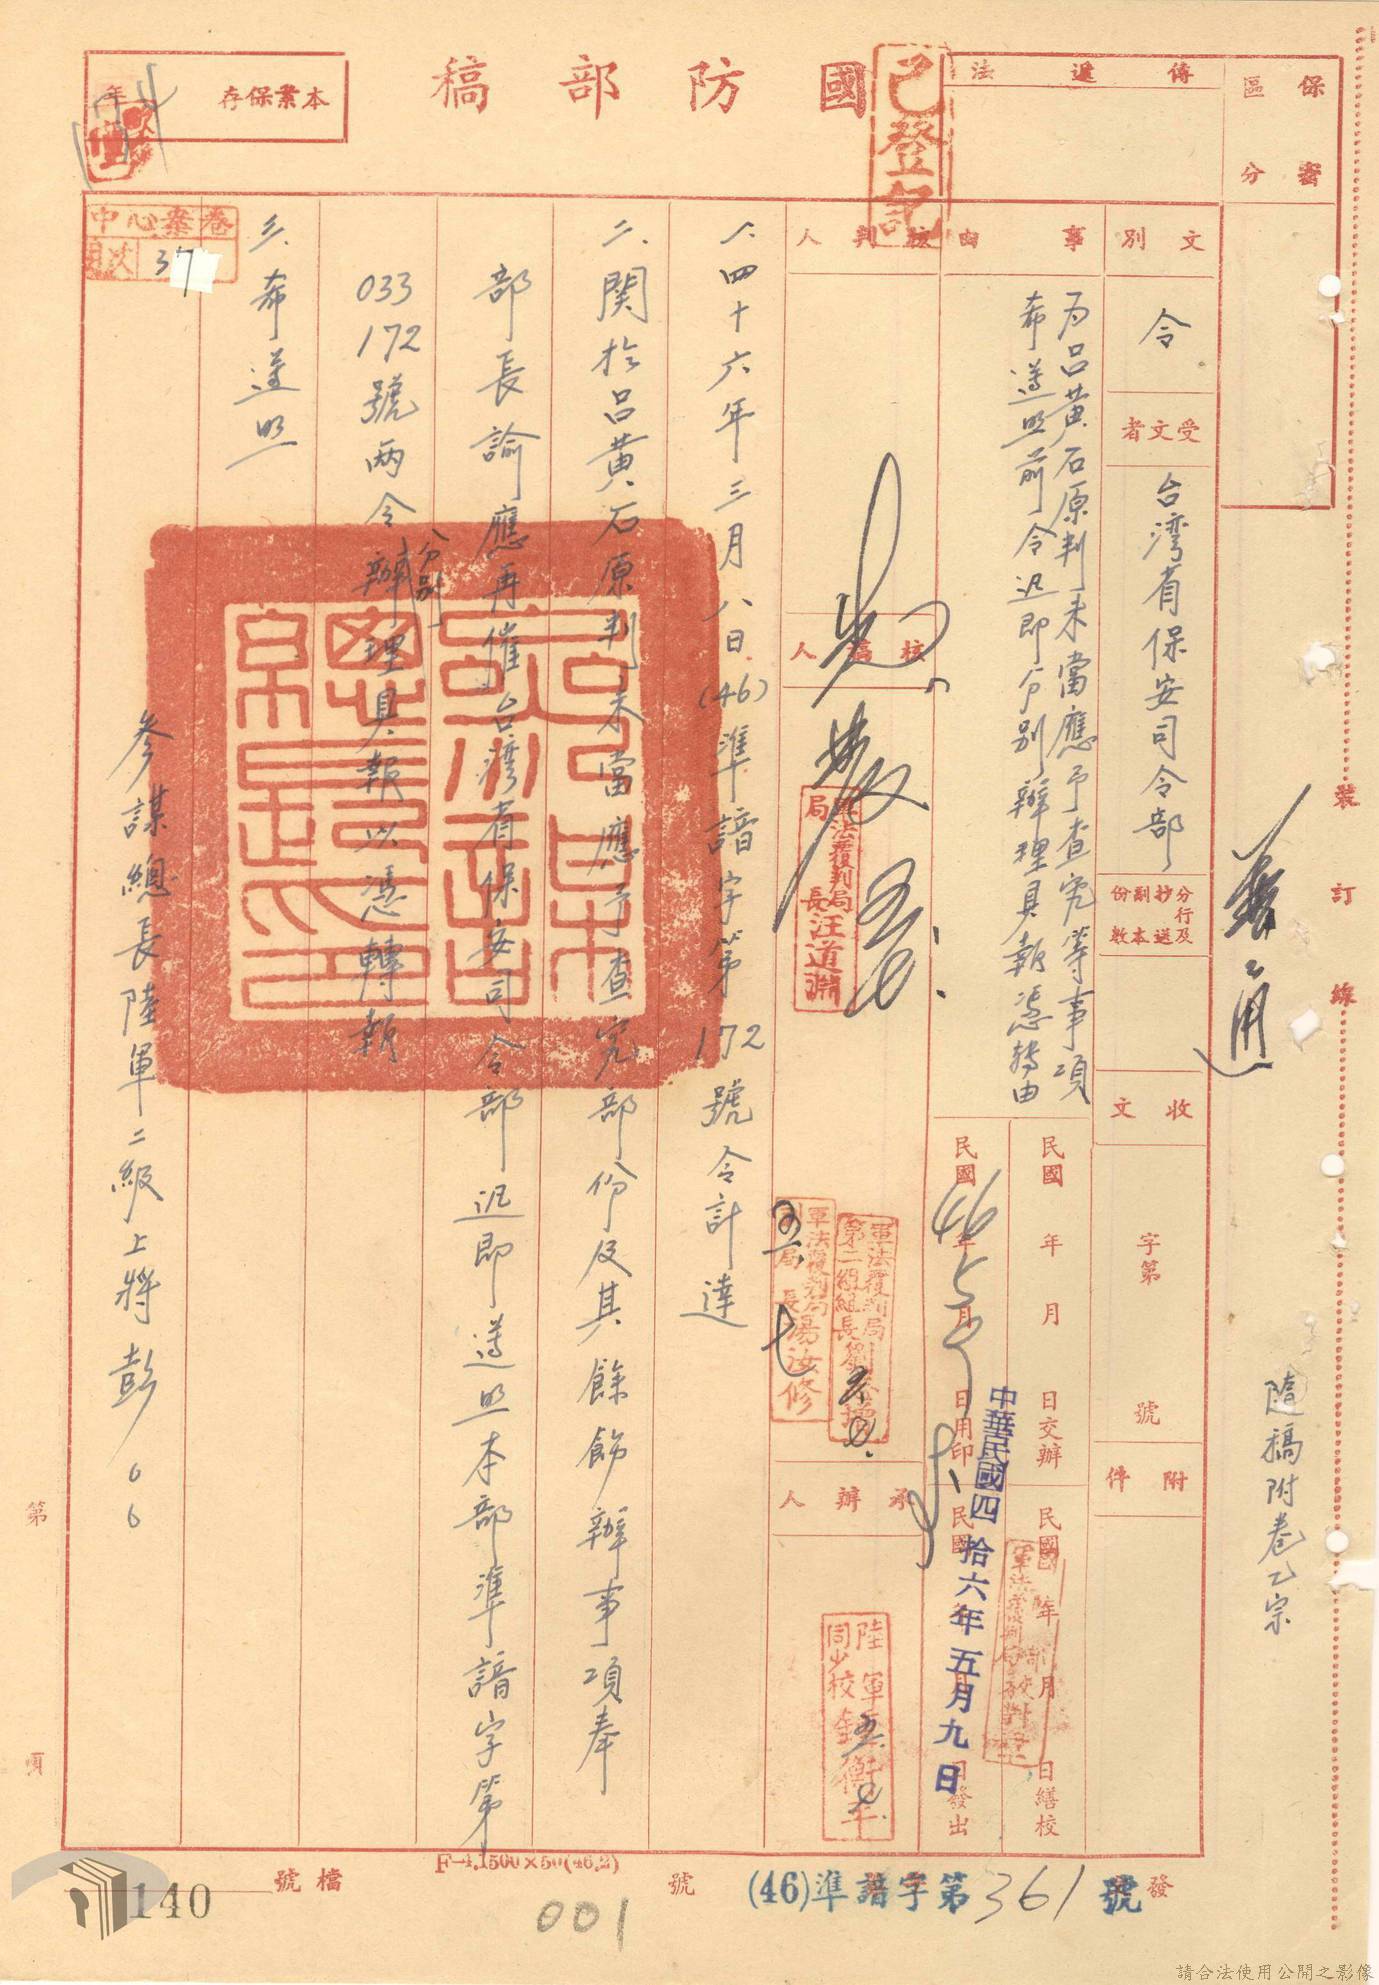 國防部稿
已登記
本案保存
年
保密
區分
傳遞法
文別
令
受文者
台灣省保安司令部
分行及抄送副本份數
收文
字第
號
附件
隨稿附卷乙宗
裝訂線
事由
為呂黃石原判未當應予查究等事項
希遵照前令迅即分別辦理具報憑轉由
民國 年 月 日交辦
民國 年 月 日繕校
民國46年5月9日用印
民國 年 月 日發出
中華民國四拾六年五月九日
核判人
核稿人
軍法覆判局局長汪道淵
軍法覆判局副局長湯汝修
軍法覆判局第二組組長劉
承辦人
陸軍
同少校
一、四十六年三月八日(46)準諳字第172號令計達
二、関於呂黃石原判未當應予查究部份及其餘飭辦事項奉
部長諭應再催台灣省保安司令部迅即遵照本部準諳字第
033
172號兩令分別辦理具報以憑轉報
三、希遵照
參謀總長陸軍二級上將彭
中心案卷
目次 37
第
頁
檔號
140
F-4.1500×50(46.2)
001
號
(46)準諳字第361號
發
請合法使用公開之影像